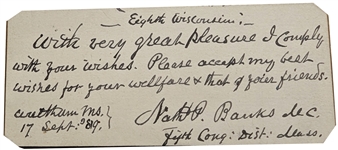 Eighth Wisconsin:
With very great pleasure I Comply
with your wishes. Please accept my best
wishes for your wellfare & that of your friends.
Waltham Ms. Nathl P. Banks M.C.
17 Sept: '89. Fifth Cong: Dist: Mass.